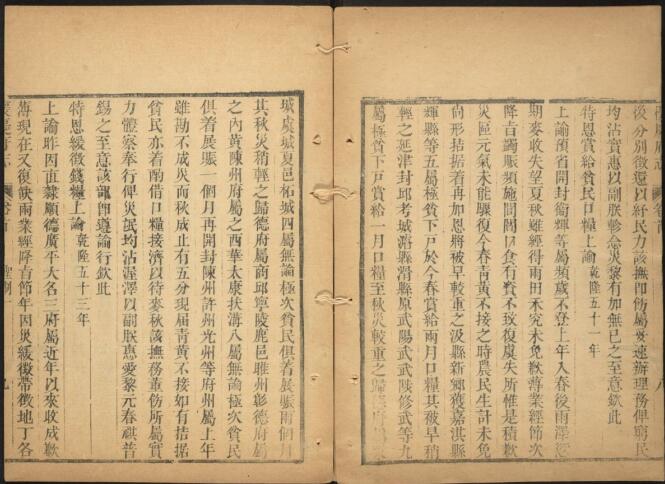 後分別徵還以紓民力該撫即飭屬妥速辦理務俾窮民
均沾實惠以副朕軫念災黎有加無已之至意欽此
特恩賞給貧民口糧上諭乾隆五十一年
上諭豫省開封衛輝等屬頻歲不登上年入春後雨澤愆
期麥收失望夏秋雖經得雨田禾究未免歉薄業經節次
降旨蠲賑頻施閭閻口食有資不致復虞失所惟是積歉
災區元氣未能驟復今春青黃不接之時農民生計未免
尚形拮据着再加恩將被旱較重之汲縣新鄉獲嘉淇縣
輝縣等五屬極貧下戶於今春賞給兩月口糧其被旱稍
輕之延津封邱考城濬縣滑縣原武陽武武陟修武等九
屬極貧下戶賞給一月口糧至秋災較重之歸德府
城虞城夏邑柘城四屬無論極次貧民俱着展賑兩個月
其秋災稍輕之歸德府屬商邱寧陵鹿邑睢州彰德府屬
之內黃陳州府屬之西華太康扶溝八屬無論極次貧民
俱着展賑一個月再開封陳州許州光州等府州屬上年
雖勘不成災而秋成止有五分現届青黃不接如有拮据
貧民亦着酌借口糧接濟以待麥秋該撫務董飭所屬實
力體察奉行俾災民均沾渥澤以副朕惠愛黎元春祺普
錫之至意該部即遵諭行欽此
特恩緩徵錢糧上諭乾隆五十三年
上諭昨因直隸順德廣平大名三府屬近年以來收成歉
薄現在又復缺雨業經降旨節年因災緩徵帶徵地丁各
府志 卷首 聖制 九